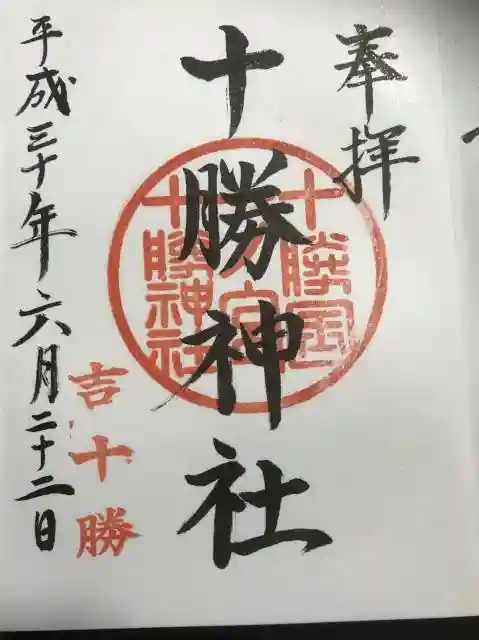 奉拝
十勝神社
十勝国
一之宮
十勝神社
平成三十年六月二十二日
吉十勝